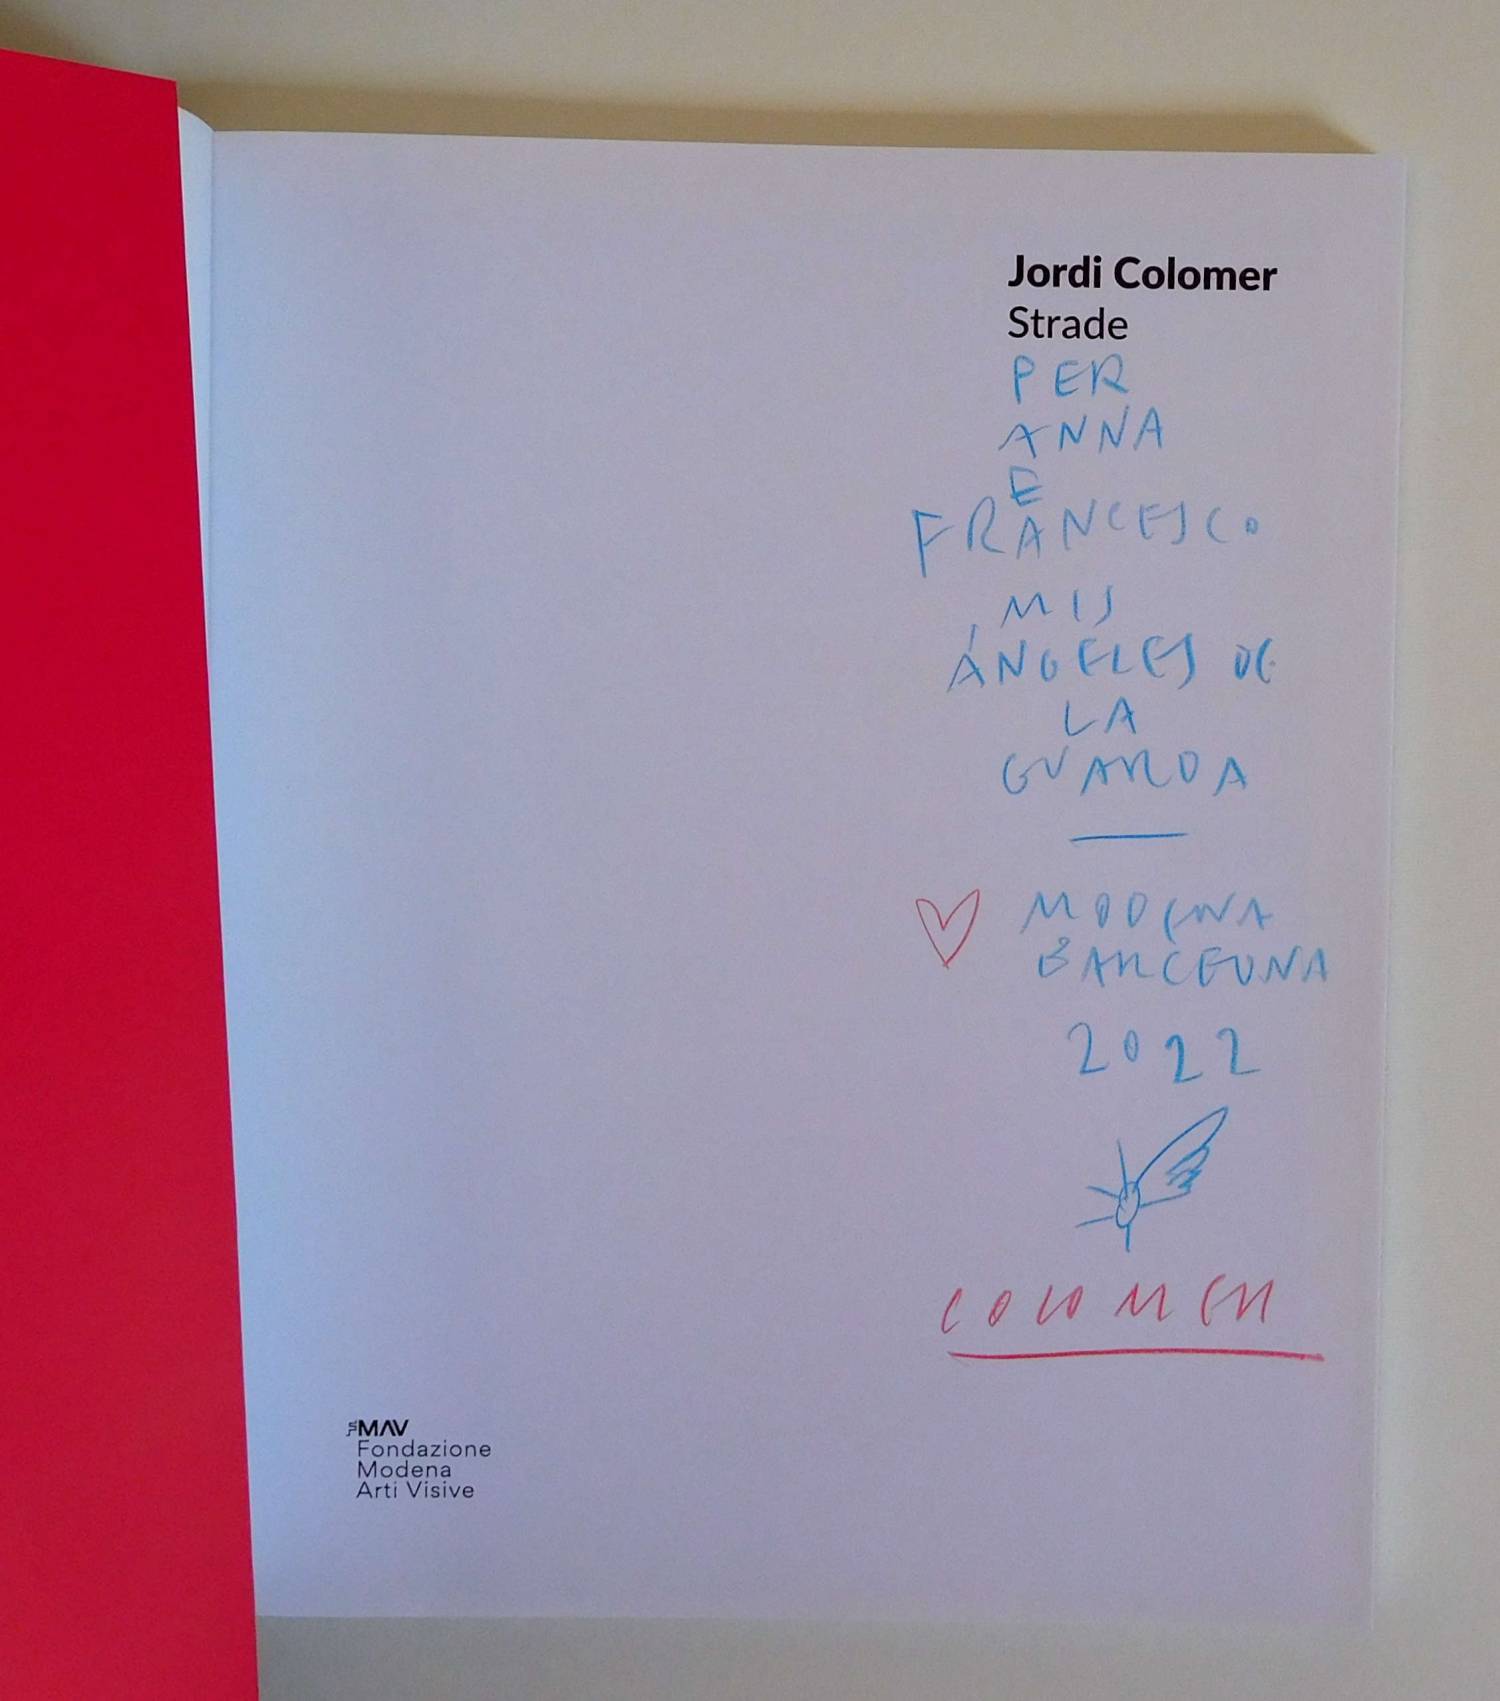 Jordi Colomer
Strade
PER
ANNA
E
FRANCESCO
MIS
ÁNGELES DE
LA
GUARDA
MODENA
BARCELONA
2022
COLOMER
MAV
Fondazione
Modena
Arti Visive